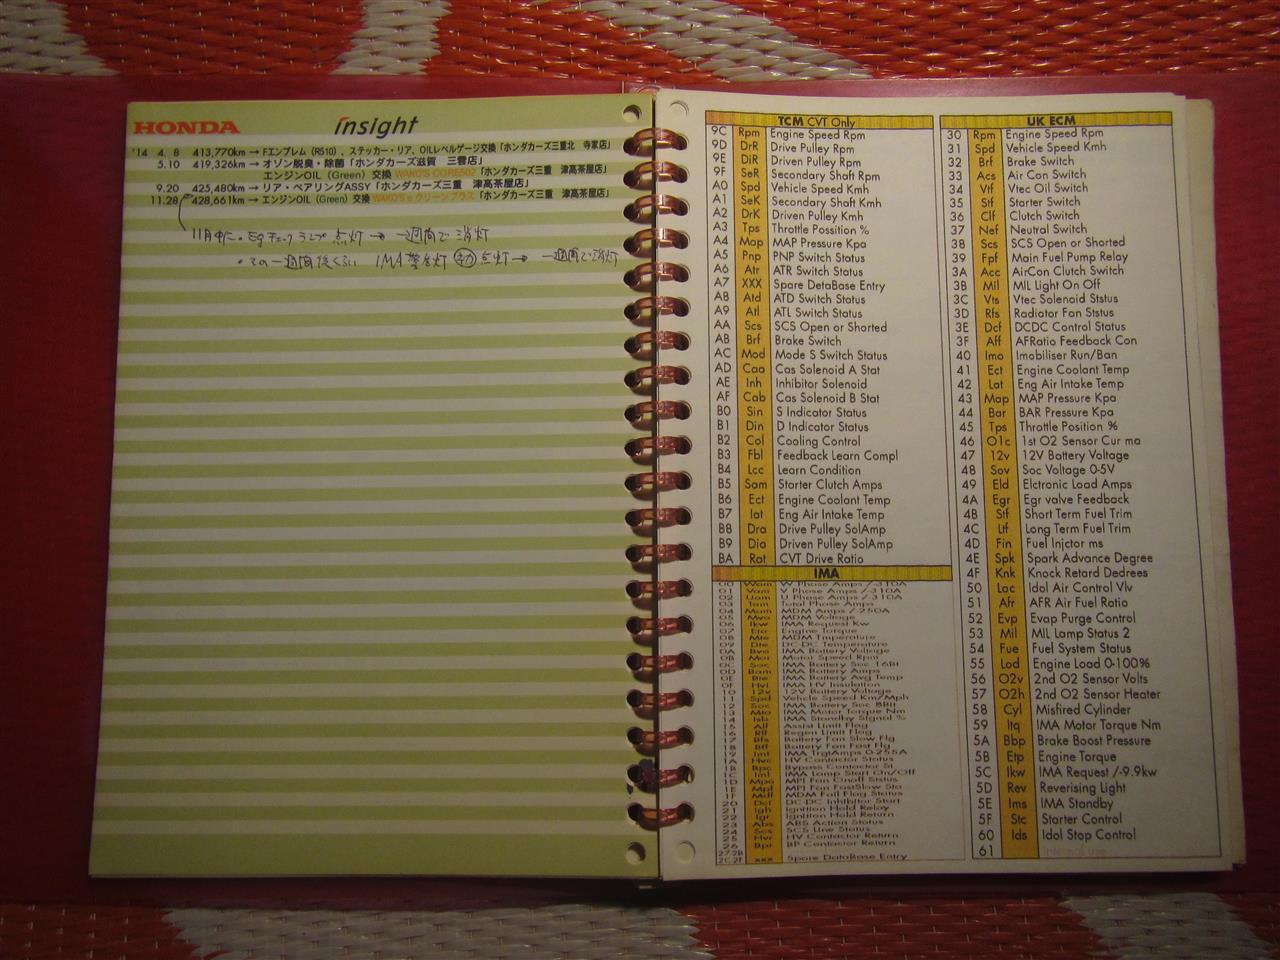 HONDA insight
'14 4. 8 413,770km→Fエンブレム（R510）、ステッカー・リア、OILレベルゲージ交換「ホンダカーズ三重北　寺家店」
5.10 419,326km→オゾン脱臭・除菌「ホンダカーズ滋賀　三雲店」
エンジンOIL（Green）交換 WAKO'S CORE502「ホンダカーズ三重　津高茶屋店」
9.20 425,480km→リア・ベアリングASSY「ホンダカーズ三重　津高茶屋店」
11.28 428,661km→エンジンOIL（Green）交換 WAKO'S e クリーンプラス「ホンダカーズ三重　津高茶屋店」
11月中に・Egチェックランプ点灯→一週間で消灯
・その一週間後くらい IMA警告灯 点灯→一週間で消灯
TCM CVT Only
9C Rpm Engine Speed Rpm
9D DrR Drive Pulley Rpm
9E DiR Driven Pulley Rpm
9F SeR Secondary Shaft Rpm
A0 Spd Vehicle Speed Kmh
A1 SeK Secondary Shaft Kmh
A2 DrK Driven Pulley Kmh
A3 Tps Throttle Possition %
A4 Map MAP Pressure Kpa
A5 Pnp PNP Switch Status
A6 Atr ATR Switch Status
A7 XXX Spare DetaBase Entry
A8 Atd ATD Switch Status
A9 Atl ATL Switch Status
AA Scs SCS Open or Shorted
AB Brf Brake Switch
AC Mod Mode S Switch Status
AD Caa Cas Solenoid A Stat
AE Inh Inhibitor Solenoid
AF Cab Cas Solenoid B Stat
B0 Sin S Indicator Status
B1 Din D Indicator Status
B2 Col Cooling Control
B3 Fbl Feedback Learn Compl
B4 Lcc Learn Condition
B5 Sam Starter Clutch Amps
B6 Ect Engine Coolant Temp
B7 Iat Eng Air Intake Temp
B8 Dra Drive Pulley SolAmp
B9 Dia Driven Pulley SolAmp
BA Rat CVT Drive Ratio
IMA
00 Wam W Phase Amps /-310A
01 Vam V Phase Amps /-310A
02 Uam U Phase Amps /-310A
03 Tam Total Phase Amps
04 Mam MDM Amps /-250A
05 Mvo MDM Voltage
06 Ikw IMA Request Kw
07 Etq Engine Torque
08 Mte MDM Tmperature
09 Dte DC-DC Temperature
0A Bvo IMA Battery Voltage
0B Mor Motor Speed Rpm
0C Soc IMA Battery Soc 16Bt
0D Bam IMA Battery Amps
0E Bte IMA Battery Avg Temp
0F Hvi IMA HV Insulation
10 12v 12V Battery Voltage
11 Spd Vehicle Speed Km/Mph
12 Soc IMA Battery Soc 8Bit
13 Mto IMA Motor Torque Nm
14 Isb IMA Standby Signal %
15 Alf Assist Limit Flag
16 Rlf Regen Limit Flag
17 Bfs Battery Fan Slow Flg
18 Bff Battery Fan Fast Flg
19 Imt IMA TrgtAmps 0-255A
1A Hvc HV Contactor Status
1B Bpc Bypass Contactor St
1C Iml IMA Lamp Start On/Off
1D Mpo MPI Fan Onoff Status
1E Mpf MPI Fan FastSlow Sta
1F Mdf MDM Fail Flag Status
20 Dcf DC-DC Inhibitor Start
21 Igh Ignition Hold Relay
22 Igr Ignition Hold Return
23 Abs ABS Action Status
24 Scs SCS Line Status
25 Hvr HV Contactor Return
26 Bpr BP Contactor Return
27 2B
2C 2F xxx Spare DataBase Entry
UK ECM
30 Rpm Engine Speed Rpm
31 Spd Vehicle Speed Kmh
32 Brf Brake Switch
33 Acs Air Con Switch
34 Vtf Vtec Oil Switch
35 Stf Starter Switch
36 Clf Clutch Switch
37 Nef Neutral Switch
38 Scs SCS Open or Shorted
39 Fpf Main Fuel Pump Relay
3A Acc AirCon Clutch Switch
3B Mil MIL Light On Off
3C Vts Vtec Solenoid Ststus
3D Rfs Radiator Fan Ststus
3E Dcf DCDC Control Status
3F Aff AFRatio Feedback Con
40 Imo Imobiliser Run/Ban
41 Ect Engine Coolant Temp
42 Lat Eng Air Intake Temp
43 Map MAP Pressure Kpa
44 Bar BAR Pressure Kpa
45 Tps Throttle Position %
46 O1c 1st O2 Sensor Cur ma
47 12v 12V Battery Voltage
48 Sov Soc Voltage 0-5V
49 Eld Elctronic Load Amps
4A Egr Egr valve Feedback
4B Stf Short Term Fuel Trim
4C Ltf Long Term Fuel Trim
4D Fin Fuel Injctor ms
4E Spk Spark Advance Degree
4F Knk Knock Retard Dedrees
50 Iac Idol Air Control Vlv
51 Afr AFR Air Fuel Ratio
52 Evp Evap Purge Control
53 Mil MIL Lamp Status 2
54 Fue Fuel System Status
55 Lod Engine Load 0-100%
56 O2v 2nd O2 Sensor Volts
57 O2h 2nd O2 Sensor Heater
58 Cyl Misfired Cylinder
59 Itq IMA Motor Torque Nm
5A Bbp Brake Boost Pressure
5B Etp Engine Torque
5C Ikw IMA Request /-9.9kw
5D Rev Reverising Light
5E Ims IMA Standby
5F Stc Starter Control
60 Ids Idol Stop Control
61